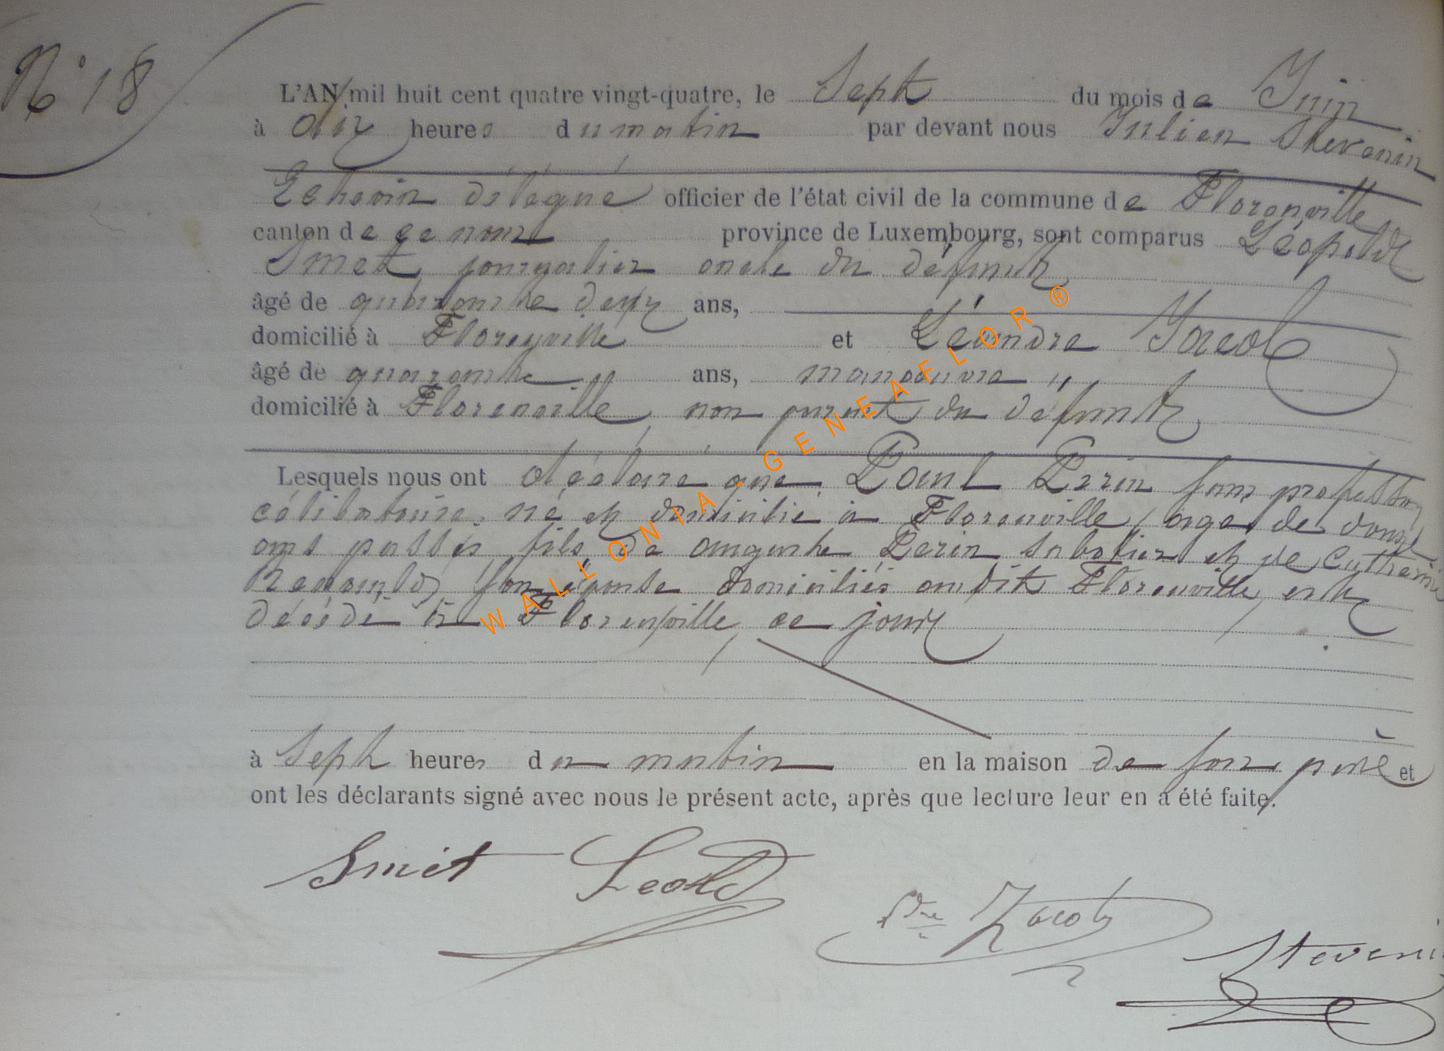 N° 18
L'AN mil huit cent quatre vingt-quatre, le Sept du mois de Juin
à dix heures du matin par devant nous Julien Stevenin
Echevin délégué officier de l'état civil de la commune de Florenville
canton de ce nom province de Luxembourg, sont comparus Léopold
Smet, journalier oncle du défunt
âgé de quarante deux ans,
domicilié à Florenville et Léandre Jacob
âgé de quarante ans, manoeuvre
domicilié à Florenville, non parent du défunt
Lesquels nous ont déclaré que Paul Perin sans profession
célibataire, né et domicilié à Florenville, age de douze
ans passés fils de auguste Perin sabotier et de Catherine
son épouse domiciliés audit Florenville, est
décédé à Florenville, ce jour
à Sept heures du matin en la maison de son père et
ont les déclarants signé avec nous le présent acte, après que lecture leur en a été faite.
Smet Leopold
Jacob
Stevenin
WALLONIA - GENEAFLOR ®